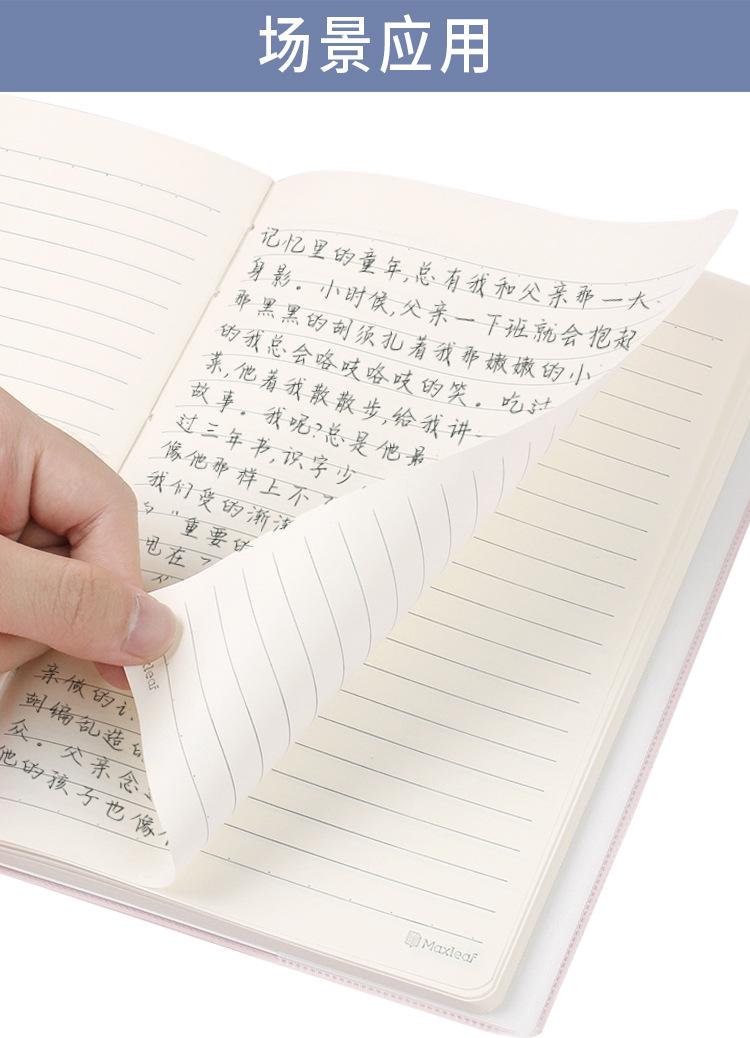 场景应用
记忆里的童年,总有我和父亲那一大
身影。小时候,父亲一下班就会抱起
那黑黑的胡须扎着我那嫩嫩的小
的我总会咯吱咯吱的笑。吃过
菜,他着我散散步,给我讲
故事。我呢?总是他最
过三年书,识字少
像他那样上不了
我们受的渐渐
"重要的
甩在
亲做的
胡编乱造的
众。父亲念
他的孩子也像
leaf
Maxleaf